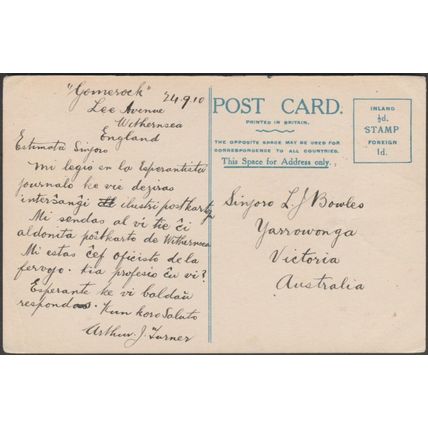 "Gomerock" 24.9.10
Lee Avenue
Withernsea
England
Estimata Sinjoro
Mi legis en la Esperantistej
journalo ke vie deziras
intersangi ilustri postkartoj
Mi sendas al vi tie ĉi
aldonita pôstkarto de Withernsea
Mi estas ĉef oficisto de la
fervojo. Kia profesio ĉu vi?
Esperante ke vi baldaŭ
respondos Kun koro Saluto
Arthur J. Turner
POST CARD.
PRINTED IN BRITAIN.
THE OPPOSITE SPACE MAY BE USED FOR
CORRESPONDENCE TO ALL COUNTRIES.
This Space for Address only.
INLAND
½d.
STAMP
FOREIGN
1d.
Sinjoro L J Bowles
Yarrowonga
Victoria
Australia